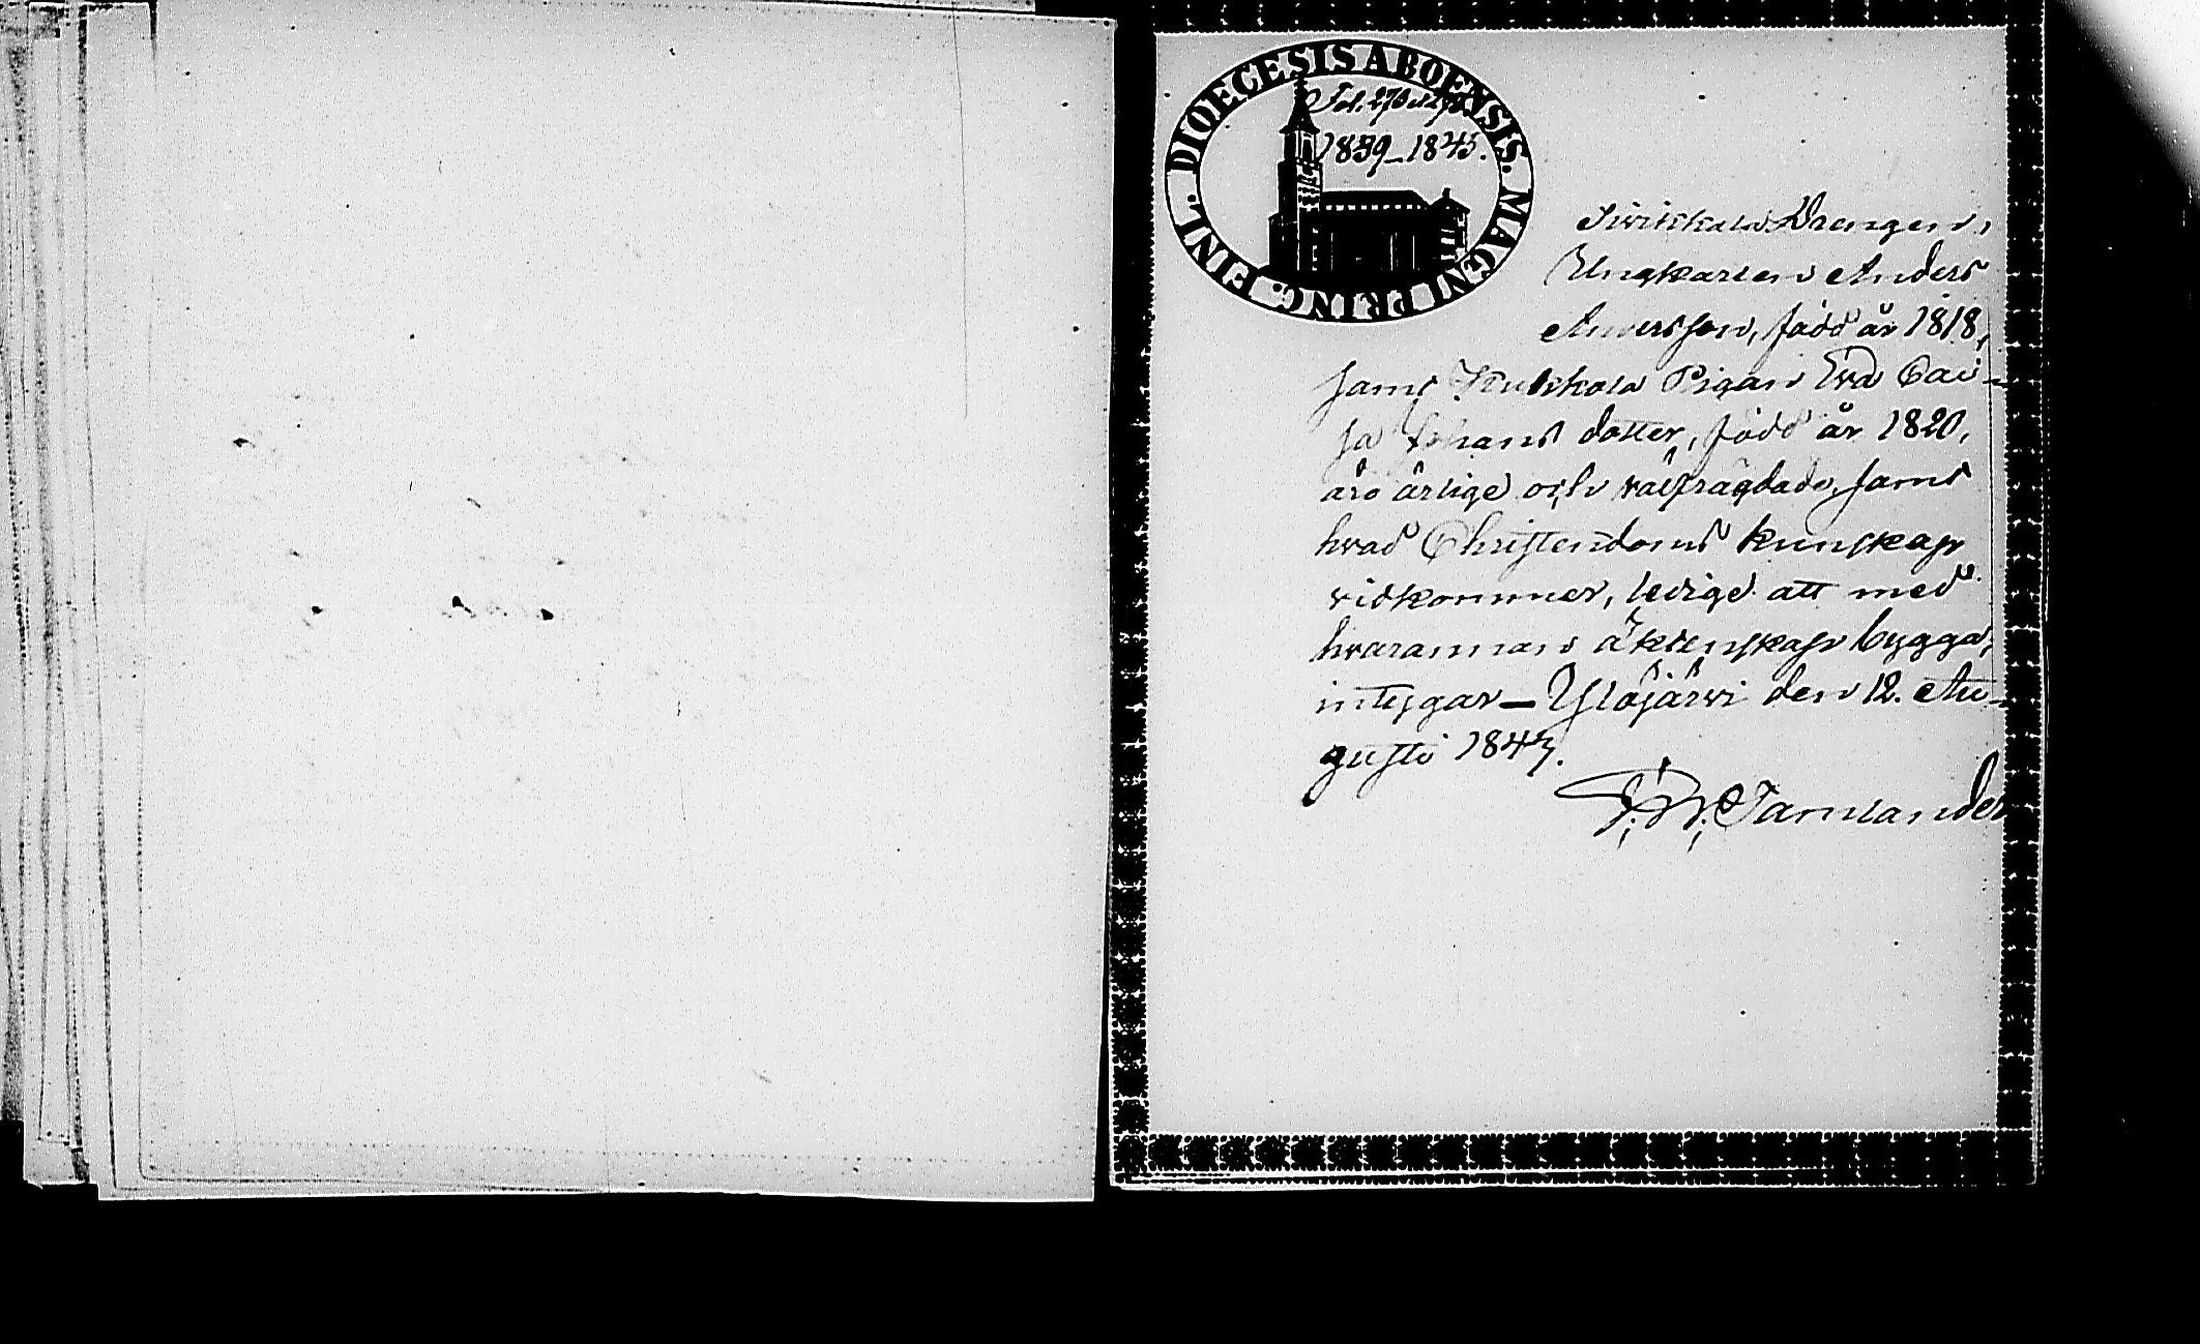 DIOECESIS ABOENSIS. MAGNI PRINC. FINL.
Fol. 276
1839–1845.
Drengen,
Ungkarlen Anders
Andersson, född år 1818,
samt Pigan Eva Cai-
sa Johans dotter, född år 1820,
äro ärlige och välfrägdade, samt
hvad Christendoms kunskap
vidkommer, ledige att med
hvarannan äktenskap bygga,
intygar — Ylöjärvi den 12. Au-
gusti 1843.
Tamlander